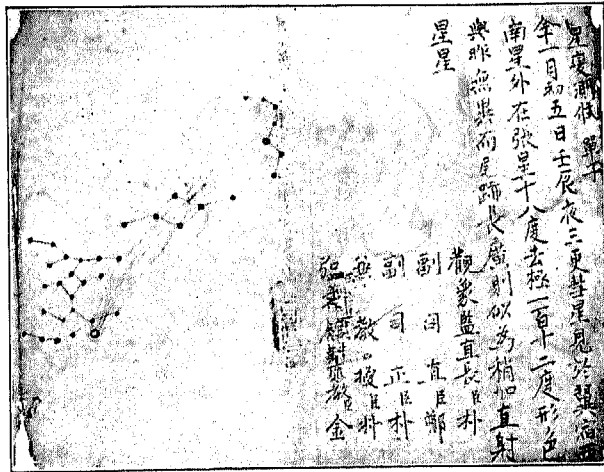 星変測候 單子
一月初五日壬辰夜三更彗星見於翼宿
南星外在張星十八度去極一百十二度形色
與昨無異而尾跡長廣則似為稍加直射
星星
觀象監直長臣朴
副司直臣鄭
副司正臣朴
教授臣
金